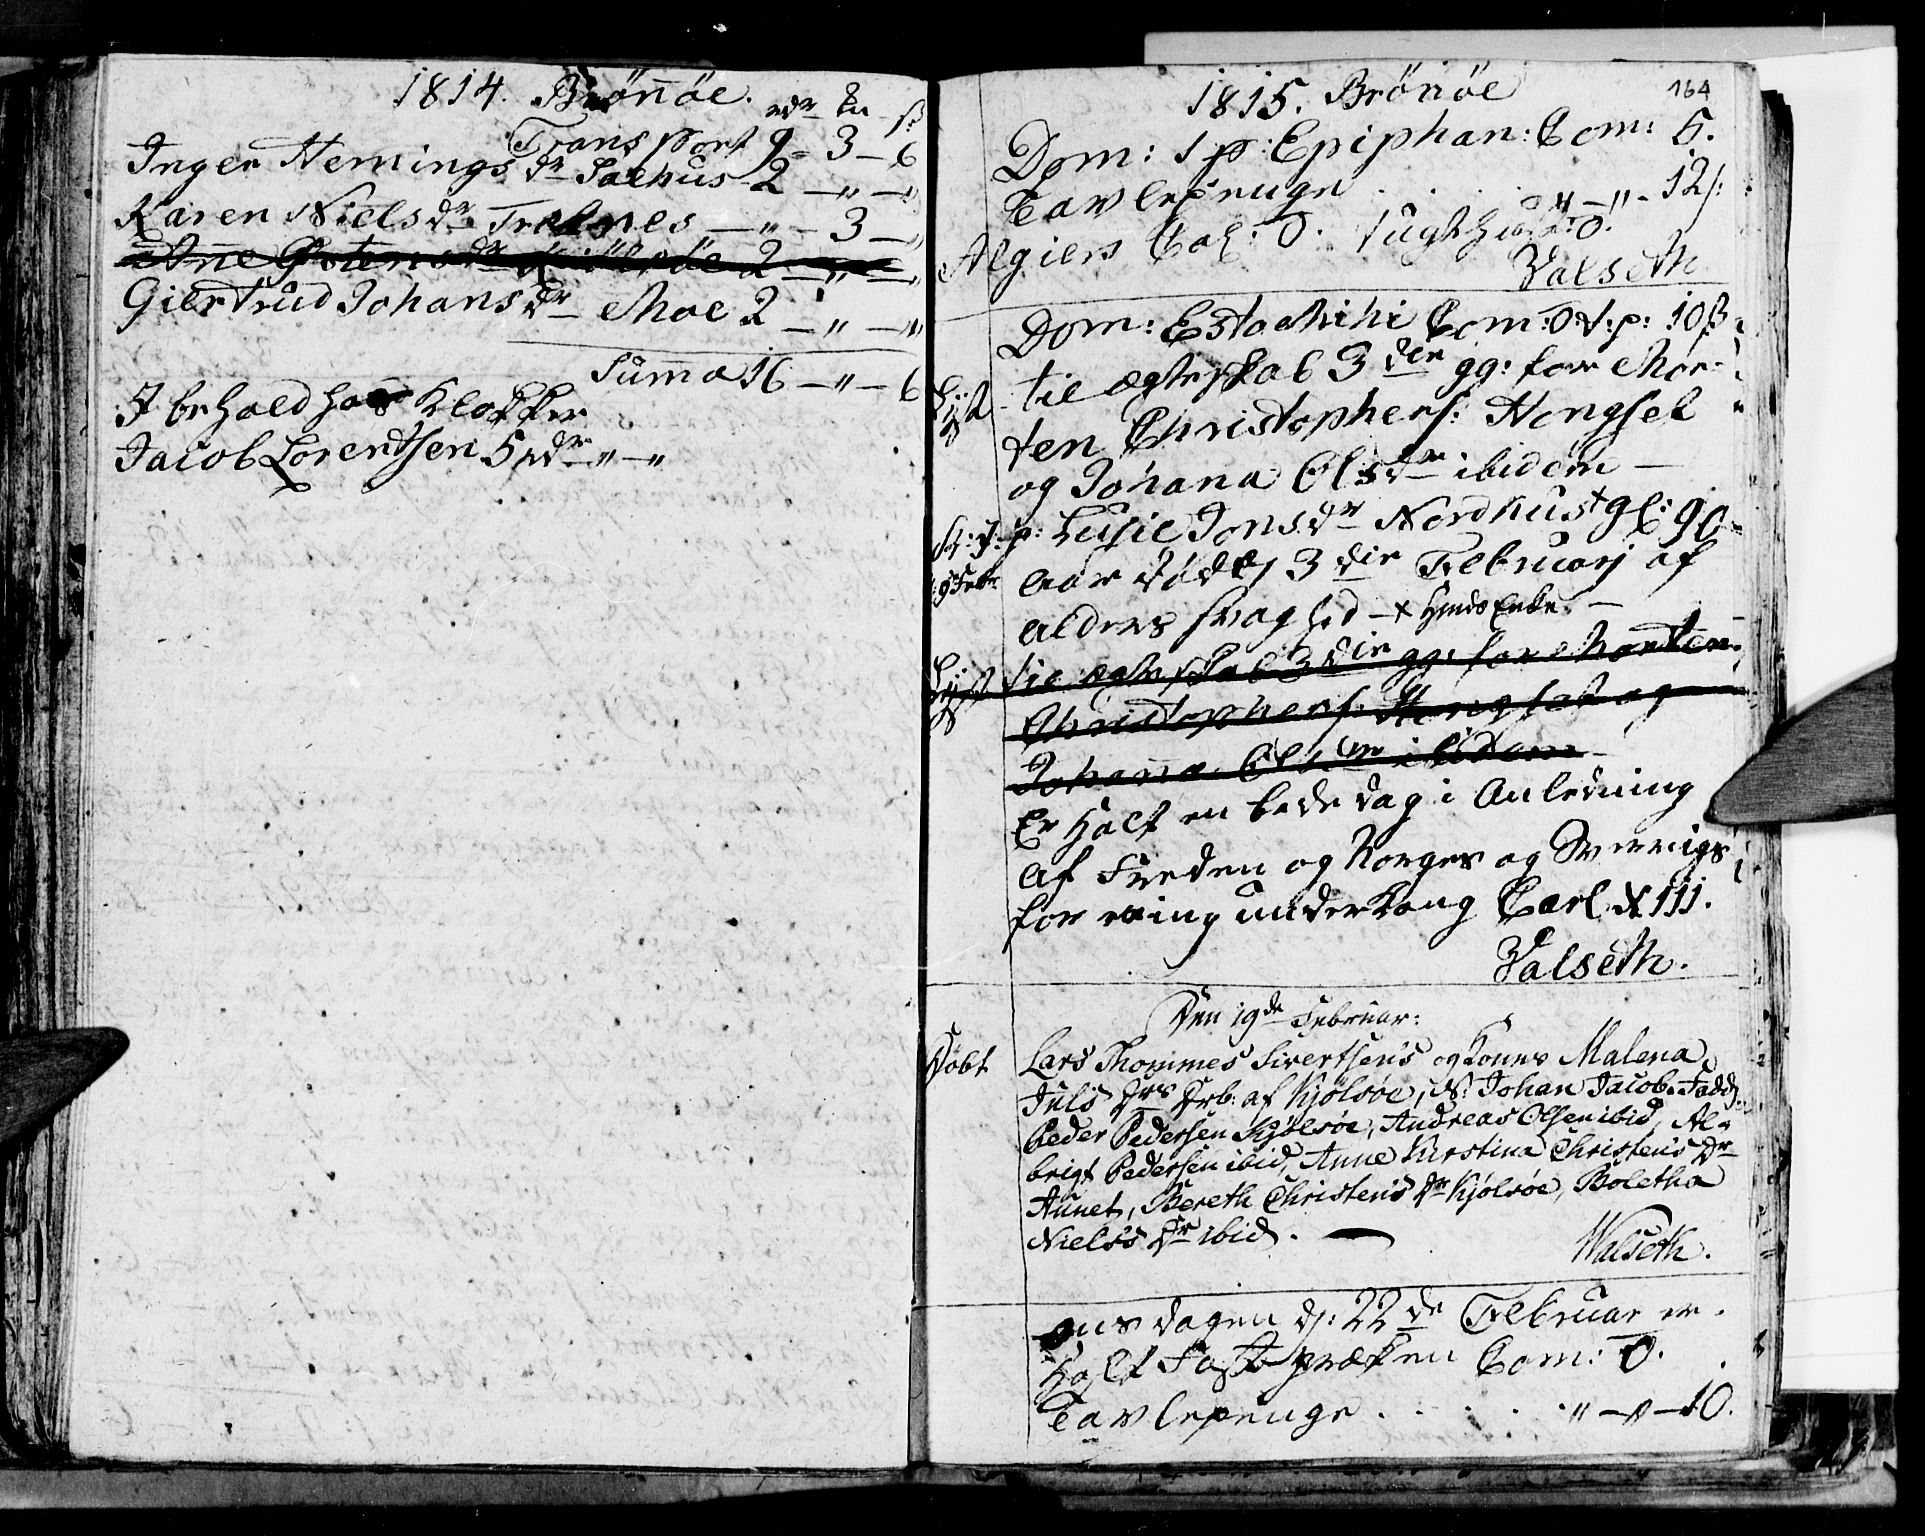 1814. Brön̄öe.
rdr ℔ ß
Transport 9 - 3 - 6
Inger Hemings dr Saelhus 2 - „ - „
Karen Niels dr Trælnes - „ - 3 - „
Ane Ostens dr 2 - „ - „
Giertrud Johans dr Moe 2 - „ - „
Sum̄a 16 - „ - 6
I behold hos Klokker
Jacob Lorentsen 5 rdr - „ - „
1815. Brönöe
164
Dom: 1 p: Epiphan: Com: 5.
Tavlepenge . . . „ - „ - 12 ß:
Algiers Cal: 0. Tugthus: 0.
Valseth
Dom: Estomihi Com: 0. t: p: 10 ß
Lyst til ægteskab 3die gg: for Mor-
ten Christophers: Hongset
og Johana Olsdr ibidem -
J: p: Lusie Jonsdr Nordhus + gl: 90
9 Febr: aar död dj 3die Februarj af
alders svaghed - + Huus Enke -
Lyst til ægteskab 3die gg: for Morten
Christophers: Hongset og
Johana Olsdr ibidem
Er Holt en bededag i Anledning
af Freden og Norges og Sverrigs
forening under Kong Carl XIII.
Valseth.
Den 19de Februar:
Döbt Lars Thommes Sivertsen's og Kones Malena
Juls Drs Drb: af Kjölsöe, N: Johan Jacob. Fadd:
Peder Pedersen Kjölsöe, Andreas Olsen ibid, Al-
brigt Pedersen ibid, Anne Kirstina Christen's Dr
Aunet, Bereth Christen's Dr Kjölsöe, Boletha
Niels's Dr ibid. -
Walseth.
Onsdagen dj: 22de Februar er
Holt Fastepræken Com: 0.
Tavlepenge . . . . . „ - „ - 10.